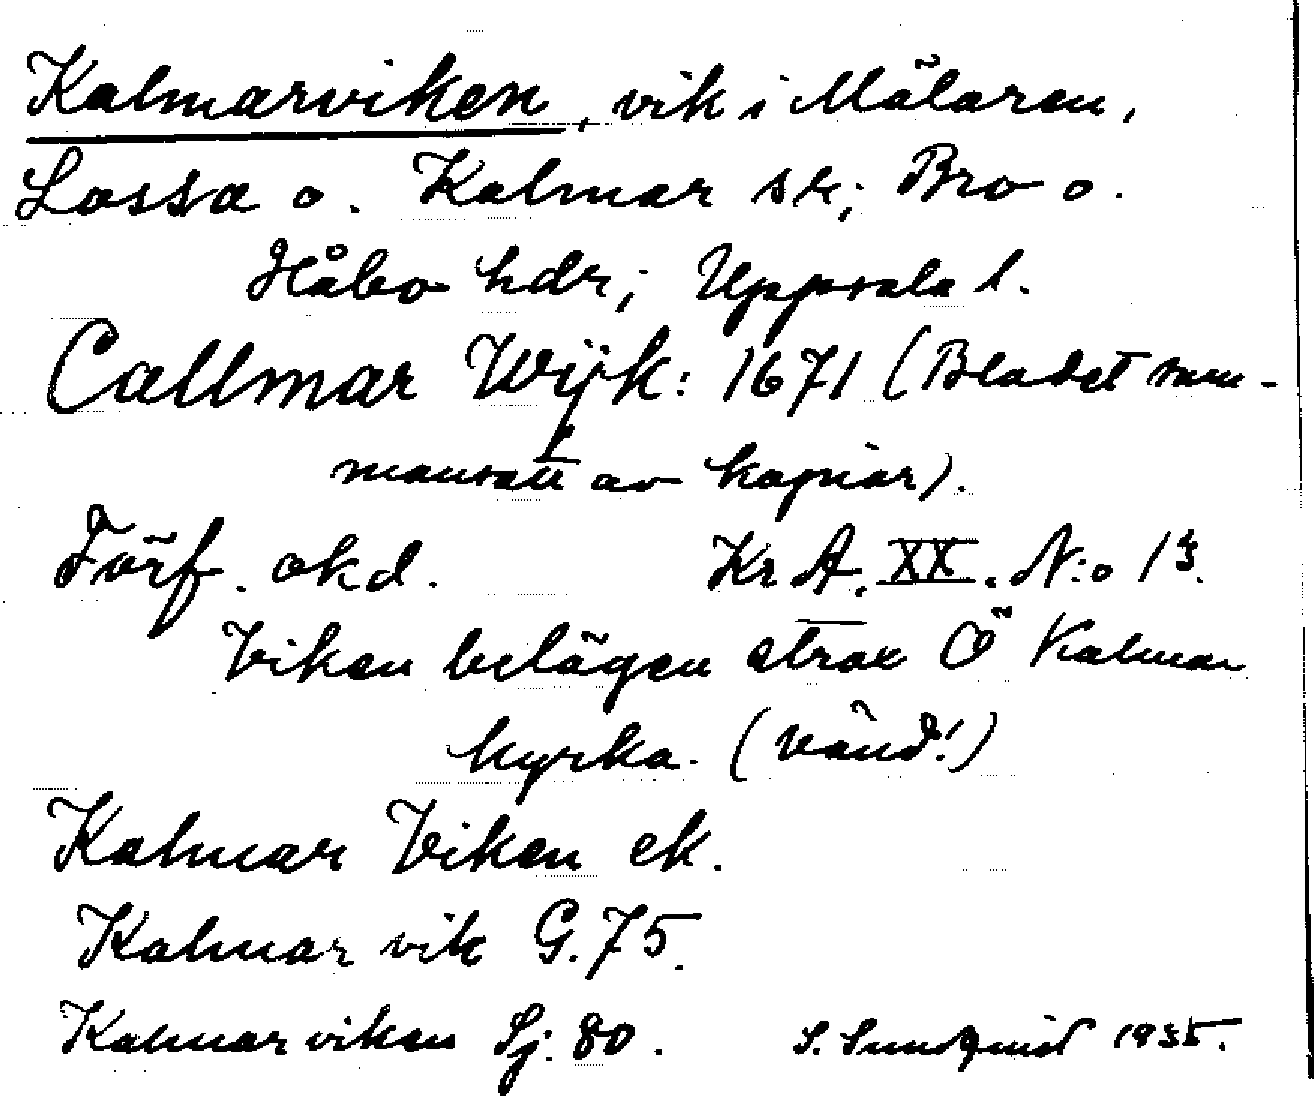 Kalmarviken, vik i Mälaren,
Lossa o. Kalmar sr; Bro o.
Håbo hdr; Uppsala l.
Callmar Wijk: 1671 (Bladet sam-
mansatt av kopior).
Förf. okd. Kr A. XX. N:o 13.
Viken belägen strax Ö Kalmar
kyrka. (Vänd!)
Kalmar Viken ek.
Kalmar vik G. 75.
Kalmarviken Sj. 80. S. Sundquist 1935.